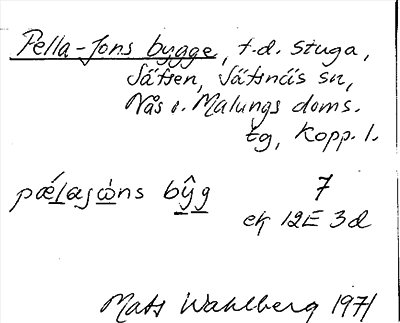 Pella-Jons bygge, f.d. stuga,
Såtsen, Såtsnäs sn,
Nås o. Malungs doms.
tg, Kopp. l.
pǽlajὼns bŷg 7
ek 12E 3d
Mats Wahlberg 1971